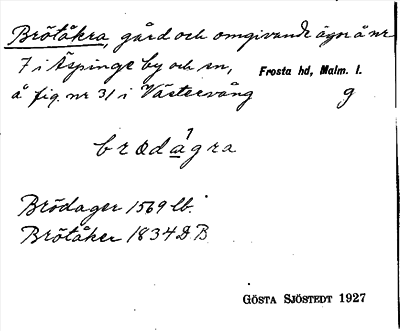 Brötåkra, gård och omgivande ägor å nr
7 i Äspinge by och sn, Frosta hd, Malm. l.
å fig. nr 31 i Västervång g
brødagra
Brödager 1569 lb.
Brötåker 1834 D.B.
GÖSTA SJÖSTEDT 1927